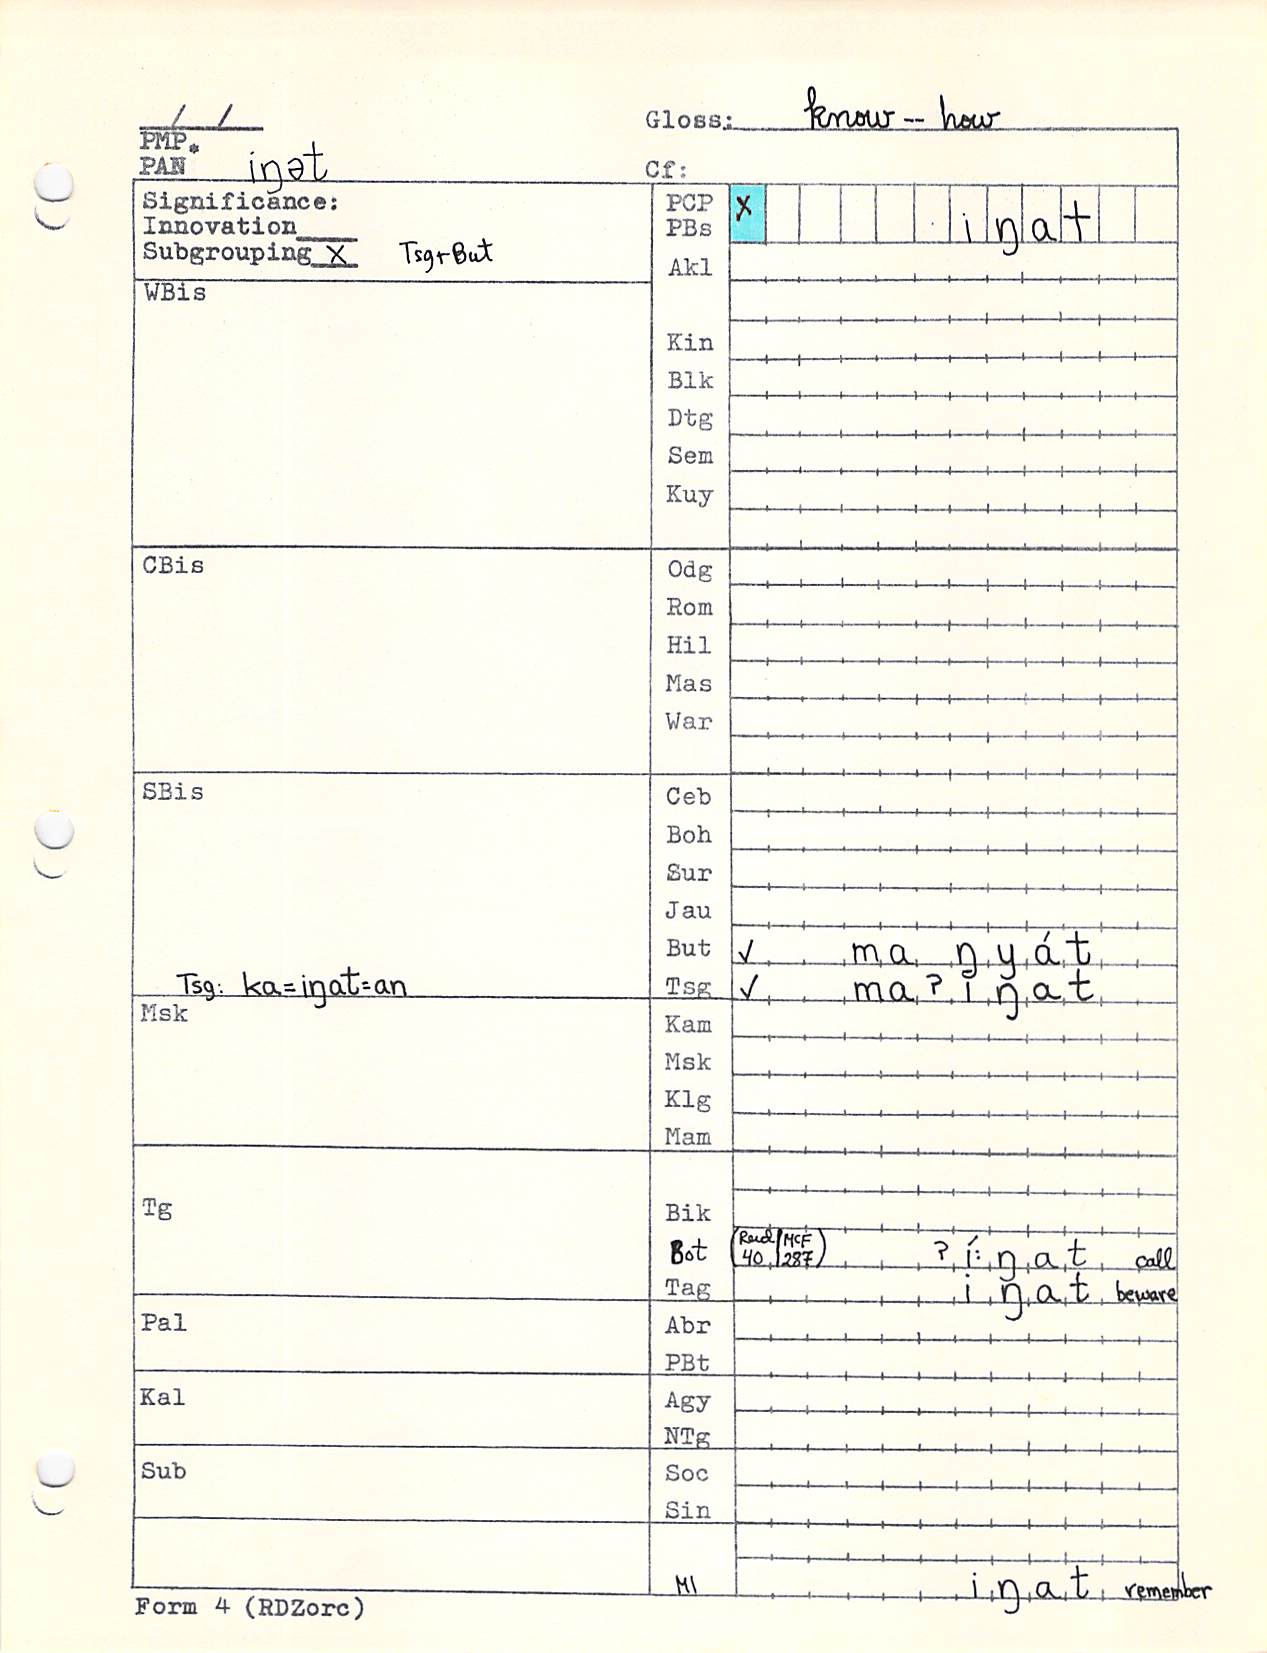 / /
PMP.
PAN iŋət
Gloss: know -- how
Cf:
Significance:
Innovation
Subgrouping X Tsg+But
PCP X
PBs iŋat
Akl
WBis
Kin
Blk
Dtg
Sem
Kuy
CBis
Odg
Rom
Hil
Mas
War
SBis
Ceb
Boh
Sur
Jau
But ✓ ma ŋyát
Tsg: ka=iŋat=an
Tsg ✓ maʔiŋat
Msk
Kam
Msk
Klg
Mam
Tg
Bik
Bot (Reid 40 | McF 287) ʔí:ŋat call
Tag iŋat beware
Pal
Abr
PBt
Kal
Agy
NTg
Sub
Soc
Sin
Ml iŋat remember
Form 4 (RDZorc)